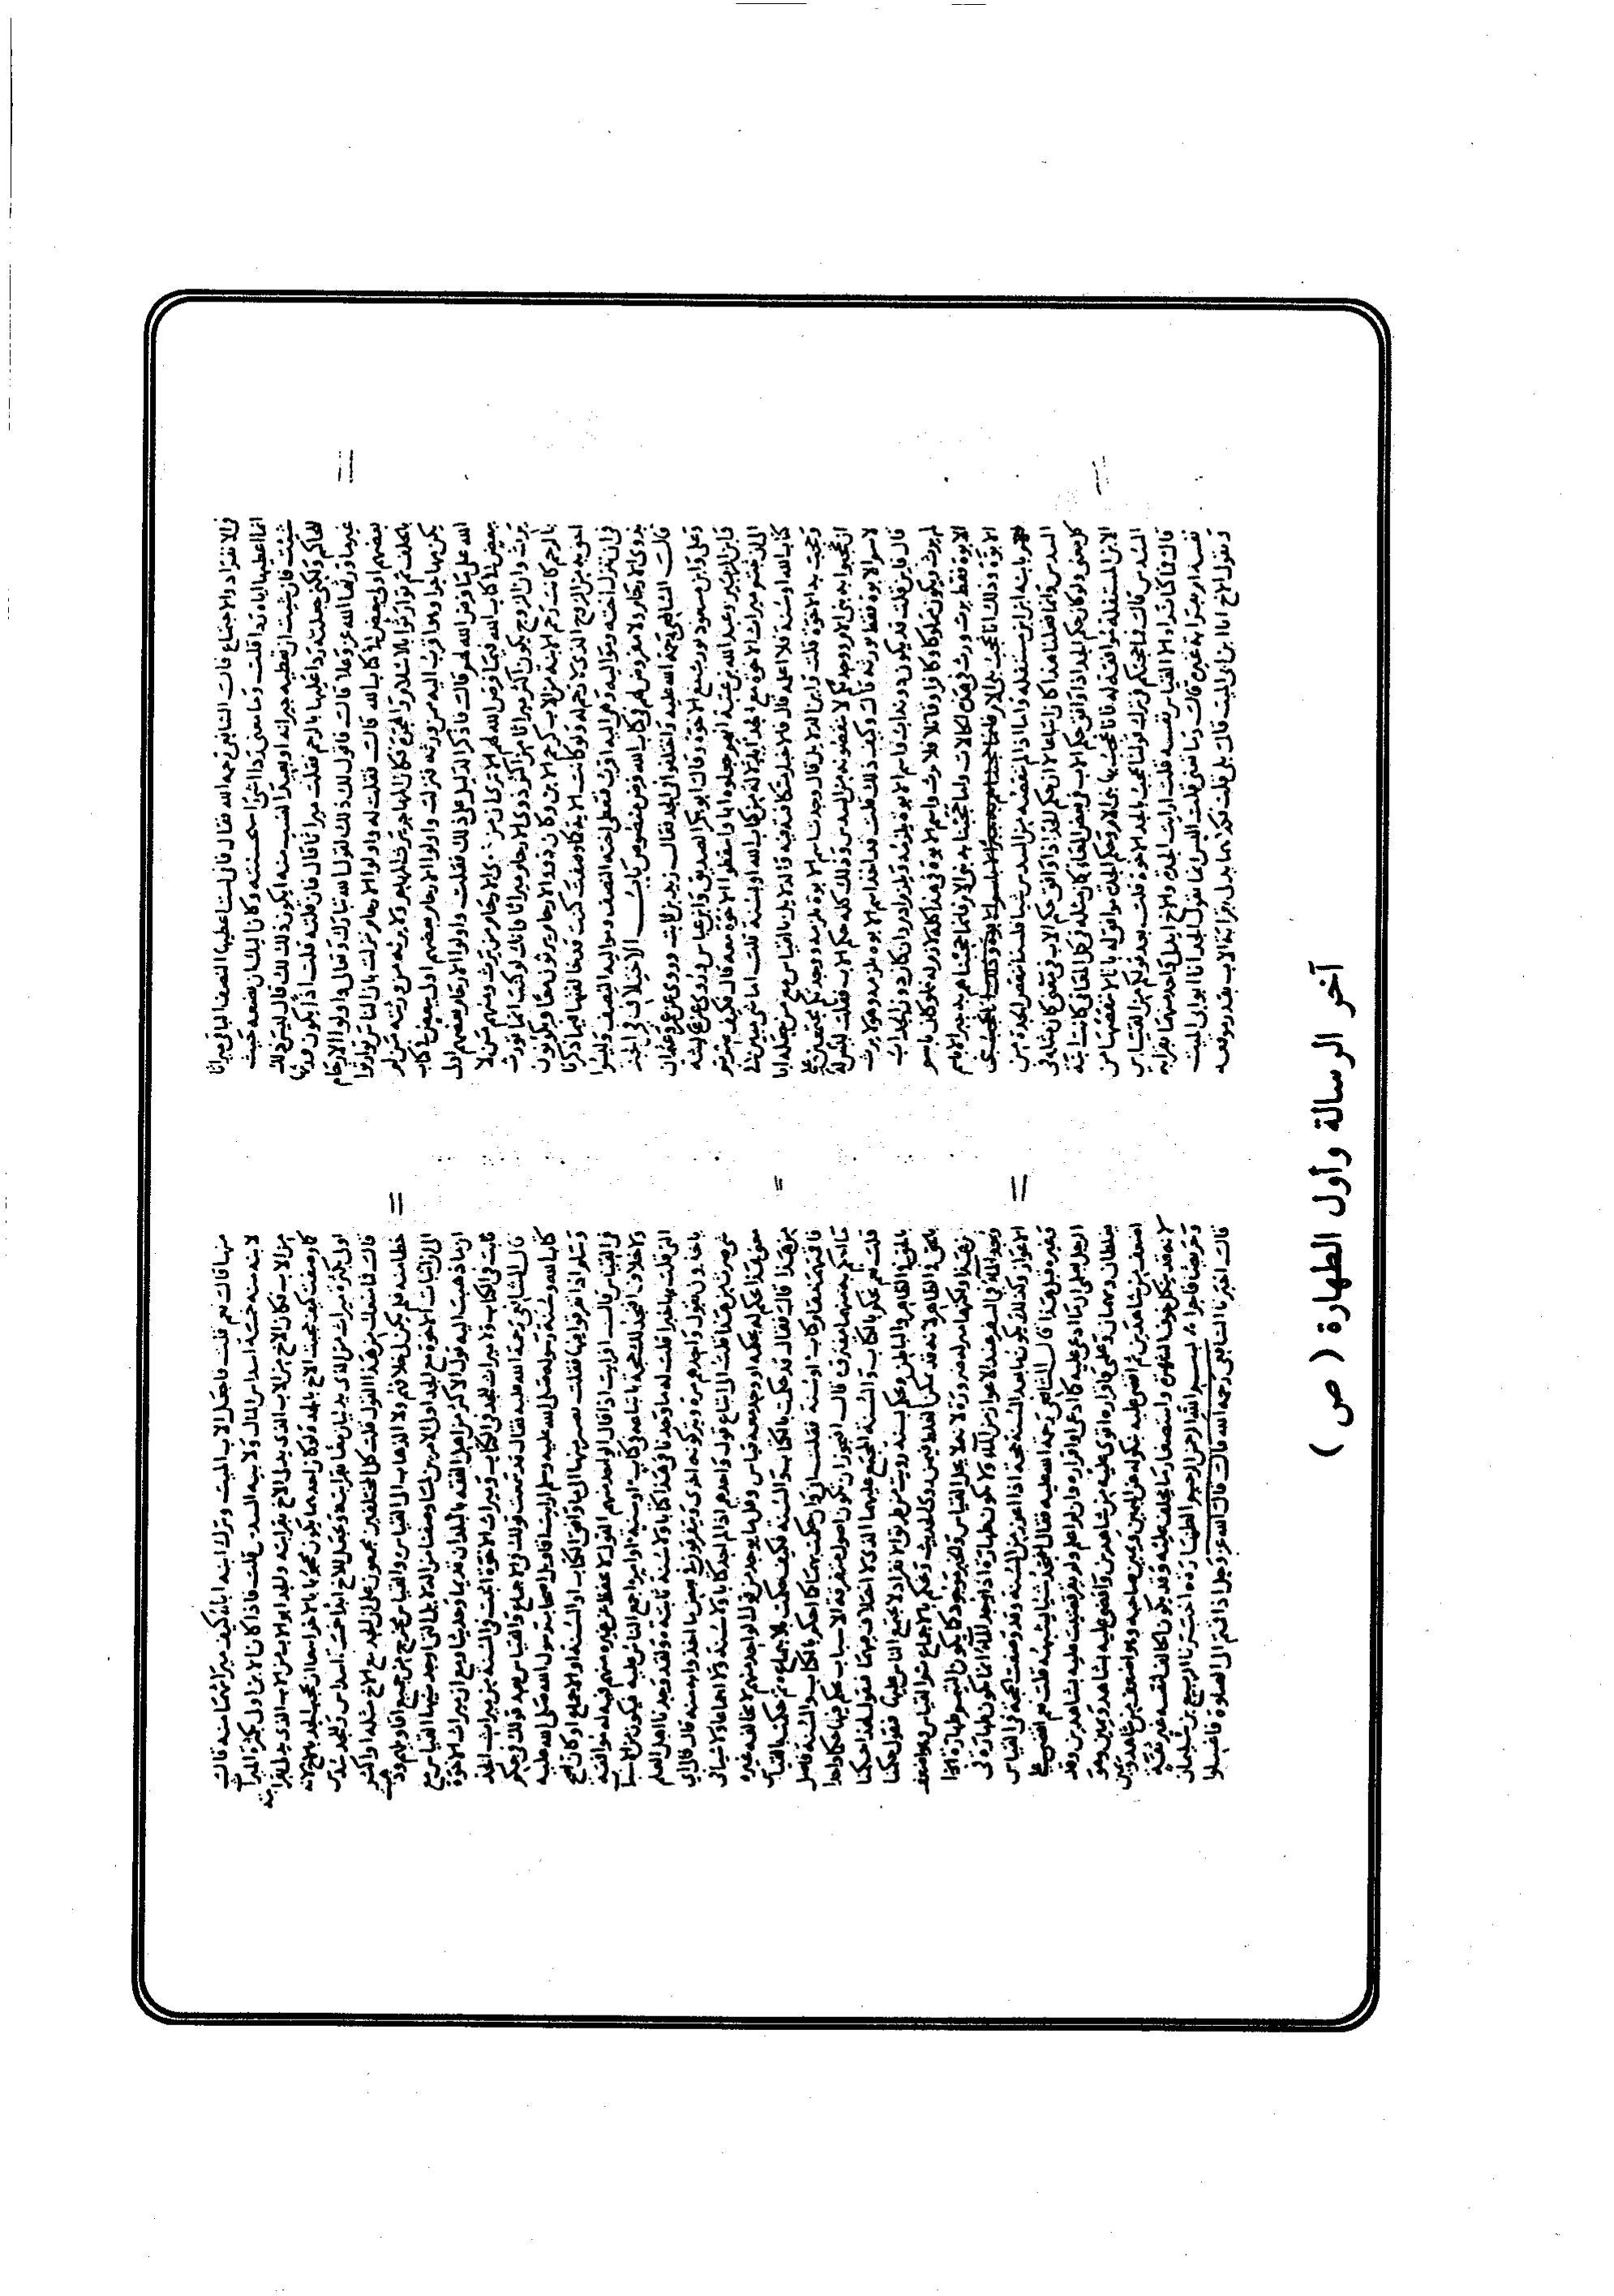 فالانفراد والاجتماع قال الشافعي رحمه الله فقال فاني لست اعطيها النصف الباقي ميراثا
انما اعطيها اياه ردا قلت وما معنى ردا اشي استحسنته وكان اليك ان تضعه حيث
شئت فان شئت ان تعطيه جيرانه او بعيد النسب منه ايكون ذلك لك قال ليس ذلك
للحاكم ولكن جعلته ردا عليها بالرحم فقلت ميراثا قال فان قلته قلت اذا تكون ورثتها
غير ما ورثها الله عز وعلا قال فاقول لك ذلك لقول الله تبارك وتعالى واولوا الارحام
بعضهم اولى ببعض في كتاب الله قال فقلت له واولوا الارحام نزلت بان الناس توارثوا
بالحلف ثم توارثوا بالاسلام والهجرة فكان المهاجر يرث المهاجر ولا يرثه من ورثته من لم
يكن مهاجرا وهو اقرب اليه من ورثه فنزلت واولوا الارحام بعضهم اولى ببعض في كتاب
الله على ما فرض الله لهم قال فاذكر الدليل على ذلك فقلت واولوا الارحام بعضهم اولى
ببعض في كتاب الله فيما فرض الله لهم الا ترى ان من ذوي الارحام من يرث ومنهم من لا
يرث وان الزوج يكون اكثر ميراثا من اكثر ذوي الارحام ميراثا وانك لو كنت انما تورث
بالرحم كانت رحم الابنة من الاب كرحم الابن وكان ذووا الارحام يرثون معا ويكونون
احق به من الزوج الذي لا رحم له ولو كانت الاية كما وصفت كنت قد خالفتها فيما ذكرنا
في ان نترك اخته ومواليه وهي اليه اقرب فتعطي اخته النصف ومواليه النصف وليسوا
بذوي الارحام ولا مفروض لهم في كتاب الله فرض منصوص باب الاختلاف في الجد
قال الشافعي رحمة الله عليه واختلفوا في الجد فقال زيد بن ثابت وروي عن عمر وعثمان
وعلي وابن مسعود يورث مع الاخوة وقال ابو بكر الصديق وابن عباس وروي عن عايشة
وابن الزبير وعبد الله بن عتبة انهم جعلوه ابا واسقطوا الاخوة معه قال فكيف صرتم
الى ان ثبتوا ميراث الاخوة مع الجد ابدلالة من كتاب الله او سنة قلت اما شي مبين في
كتاب الله او سنة فلا اعلمه قال فالاخبار متكافئة والدلايل بالقياس مع من جعله ابا
وحجب به الاخوة قلت واين الدلايل قال وجدت اسم الابوة يلزمه ووجدتكم مجتمعين على
ان تحجبوا به بني الام ووجدتكم لا تنقصونه من السدس وذلك كله حكم الاب فقلت ليس
لاسم الابوة فقط نورثه قال وكيف ذلك قلت قد اجد اسم الابوه يلزمه وهو لا يرث
قال فاين قلت قد يكون دونه اب واسم الابوه يلزمه ويلزم ادم وان كان دون الجد اب
لم يرث ويكون مملوكا وكافرا وقاتلا فلا يرث واسم الابوة في هذا كله لازم له فلو كان باسم
الابوة فقط يرث ورث في هذه الحالات واما حجبنا به بني الام فانما حجبناهم به خبرا لا باسم
الابوة وذلك انا نحجب بني الام
ببنت ابن ابن متسفلة واما انا لم ننقصه من السدس فلسنا ننقص الجدة من
السدس وانما فعلنا هذا كله اتباعا لا ان حكم الجد اذا وافق حكم الاب في معنى كان مثله في
كل معنى ولو كان حكم الجد اذا وافق حكم الاب في بعض المعاني كان مثله في كل المعاني كانت ابنة
الابن المتسفلة موافقة له فانا نحجب بها بني الام وحكم الجدة موافق له بانا لا ننقصها من
السدس قال فما حجتكم في ترك قولنا نحجب بالجد الاخوة قلت بعد قولكم من القياس
قال فما كنا نراه الا القياس نفسه قلت ارايت الجد والاخ ايدلي واحد منهما بقرابة
نفسه ام بقرابة غيره قال وما تعني قلت اليس انما يقول الجد انا ابو ابي الميت
ويقول الاخ انا ابن ابي الميت قال بلى قلت فكلاهما يدلي بقرابة الاب بقدر موقعه
منها قال نعم قلت فاجعل الاب الميت وترك ابنه واباه كيف ميراثهما منه قال
لابنه خمسة اسداس المال ولابيه السدس قلت فاذا كان الابن اولى بكثرة الميراث
من الاب وكان الاخ من الاب الذي يدلي الاخ بقرابته والجد ابو الاب من الاب الذي يدلي بقرابته
كما وصفت كيف حجبت الاخ بالجد ولو كان احدهما يكون محجوبا بالاخر انبغى ان يحجب الجد بالاخ لانه
اولى بكثرة ميراث من الذي يدليان معا بقرابته او تجعل للاخ ابدا خمسة اسداس وللجد سدس
قال فما منعك من هذا القول قلت كل المختلفين مجتمعون على ان الجد مع الاخ مثله او اكثر
حظا منه فلم يكن لي خلافهم ولا الذهاب الى القياس والقياس مخرج من جميع اقاويلهم وذهبت
الى اثبات الاخوة مع الجد اولى الامرين لما وصفت من الدلايل التي اوجدنيها القياس مع
ان ما ذهبت اليه قول الاكثر من اهل الفقه بالبلدان قديما وحديثا مع ان ميراث الاخوة
ثابت في الكتاب ولا ميراث للجد في الكتاب وميراث الاخوة اثبت في السنة من ميراث الجد
قال الشافعي رحمة الله عليه فقال قد سمعت قولك في الاجماع والقياس بعد قولك في حكم
كتاب الله وسنة رسوله صلى الله عليه وسلم ارايت اقاويل اصحاب رسول الله صلى الله عليه
وسلم اذا تفرقوا فيها فقلت نصير منها الى ما وافق الكتاب او السنة او الاجماع او كان اصح
في القياس قال افرايت اذا قال الواحد منهم القول لا يحفظ عن غيره منهم فيه له موافقة
ولا خلافا اتجد لك حجة باتباعه في كتاب او سنة او امر اجمع الناس عليه فيكون من الاسباب
التي قلت بها خبرا قلت له ما وجدنا في هذا كتابا ولا سنة ثابتة ولقد وجدنا اهل العلم
ياخذون بقول واحدهم مرة ويتركونه اخرى ويتفرقون في بعض ما اخذوا به منه قال فالى اي
شي صرت من هذا قلت الى اتباع قول واحدهم اذا لم اجد كتابا ولا سنة ولا اجماعا ولا شيا في
معنى هذا يحكم له بحكمه او وجد معه قياس وقل ما يوجد من قول الواحد منهم لا يخالفه غيره
من هذا قال فقال قد حكمت بالكتاب والسنة فكيف حكمت بالاجماع ثم حكمت بالقياس
فاقمتهما مقام كتاب او سنة فقلت اني وان حكمت بها كما احكم بالكتاب والسنة فاصل
ما احكم به منهما مفترق قال افيجوز ان تكون اصول مفترقة الاسباب يحكم فيها حكما واحدا
قلت نعم يحكم بالكتاب والسنة المجتمع عليهما الذي لا اختلاف فيهما فنقول لهذا حكمنا
بالحق في الظاهر والباطن ويحكم بسنة رويت من طريق الانفراد لا يجتمع الناس عليها فنقول حكمنا
بالحق في الظاهر لانه قد يمكن الغلط فيمن روى الحديث ونحكم بالاجماع ثم القياس وهو اضعف
من هذا ولكنها منزلة ضرورة لانه لا يحل القياس والخبر موجود كما يكون التيمم طهارة
في السفر عند الاعواز من الماء ولا يكون طهارة اذا وجد الماء انما يكون طهارة في
الاعواز وكذلك يكون ما بعد السنة حجة اذا اعوز من السنة وقد وصفت الحجة في القياس
وغيره قبل هذا قال الشافعي رحمة الله عليه فقال افتجد شيا يشبهه قلت نعم اقضي على
الرجل بعلمي ان ما ادعى عليه كما ادعى او اقراره فان لم اعلم ولم يقر قضيت عليه بشاهدين وقد
يغلطان ويهمان وعلمي واقراره اقوى عليه من شاهدين واقضي عليه بشاهد ويمين وهو
اضعف من شاهدين ثم اقضي عليه بنكوله عن اليمين ويمين صاحبه وهو اضعف من شاهد ويمين
لانه قد ينكل خوف الشهرة واستصغار ما يحلف عليه وقد يكون الحالف لنفسه غير ثقة
وحريصا فاجرا بسم الله الرحمن الرحيم الطهارة اخبرنا الربيع بن سليمان
قال اخبرنا الشافعي رحمه الله قال قال الله عز وجل اذا قمتم الى الصلوة فاغسلوا
آخر الرسالة وأول الطهارة ( ص )